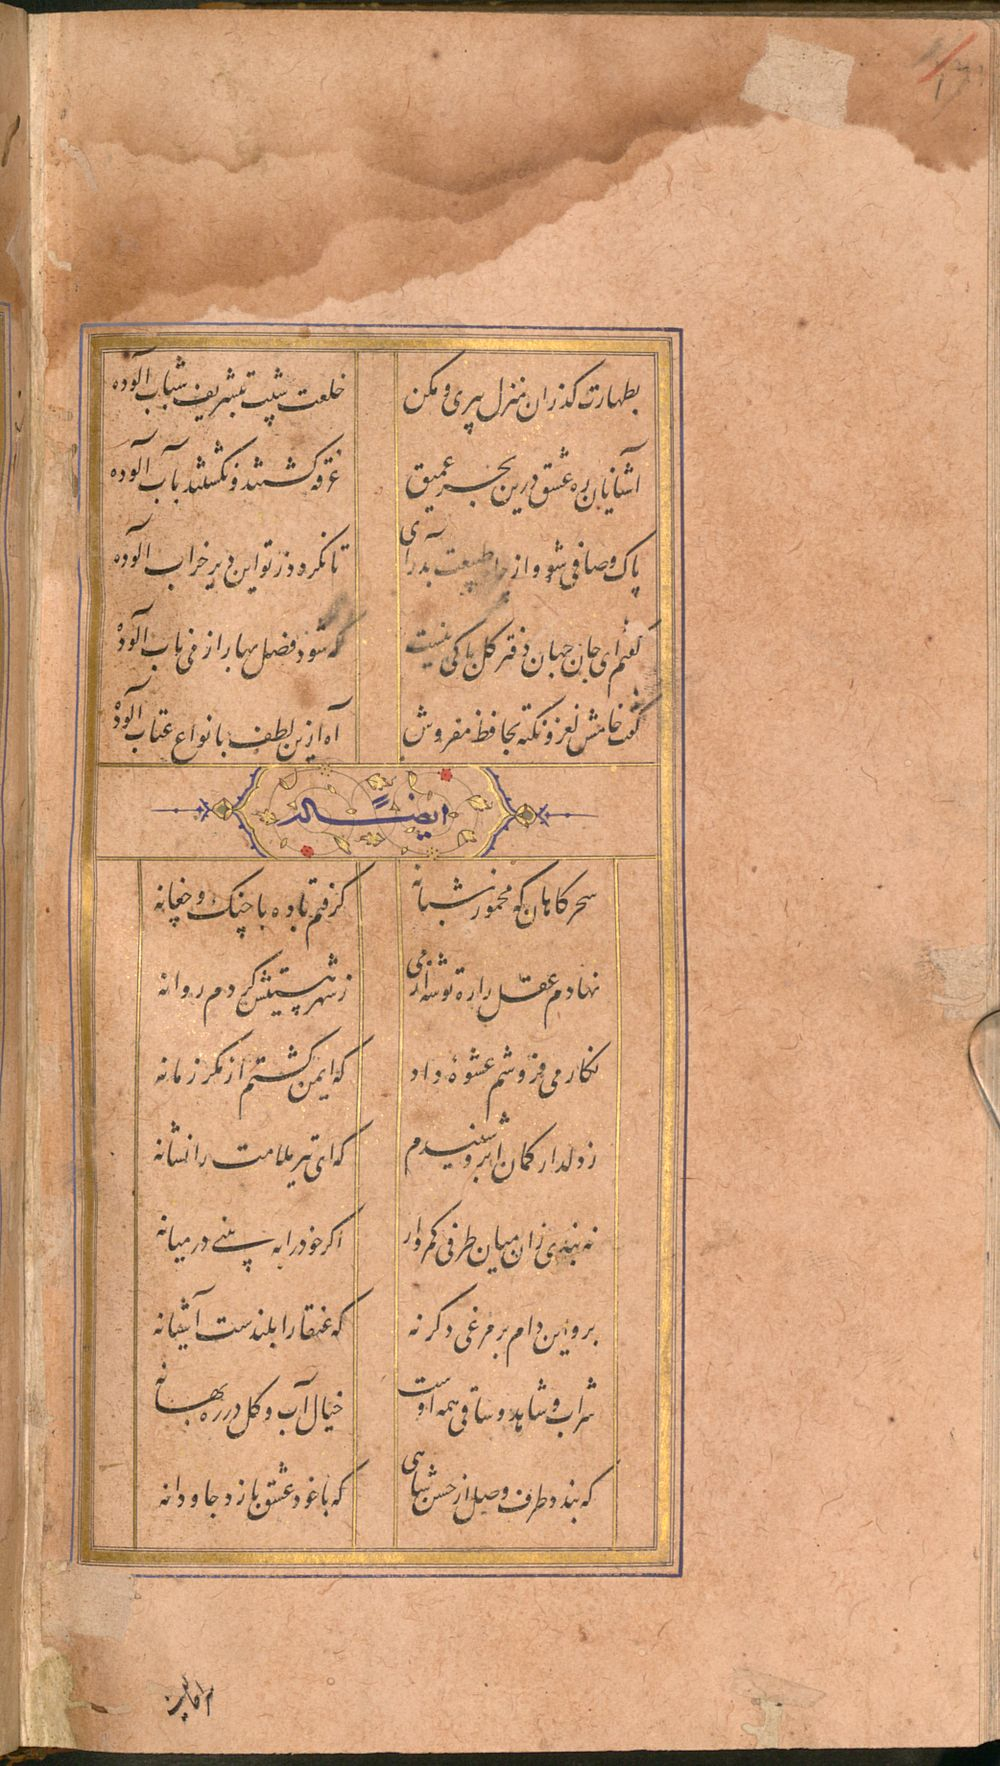 بطهارت گذران منزل پیری و مکن
خلعت شیب بتشریف شباب آلوده
آشنایان ره عشق درین بحر عمیق
غرقه گشتند و نگشتند بآب آلوده
پاک و صافی شو و از چاه طبیعت بدر آی
تا نگردد ز تو این دیر خراب آلوده
گفتم ای جان جهان دفتر گل باکی نیست
که شود فصل بهار از می ناب آلوده
گفت خامش لغز و نکته بحافظ مفروش
آه ازین لطف بانواع عتاب آلوده
ایضاً له
سحرگاهان که مخمور شبانه
گرفتم باده با چنگ و چغانه
نهادم عقل را ره توشه از می
ز شهر هستیش کردم روانه
نگار می فروشم عشوهٔ داد
که ایمن گشتم از مکر زمانه
ز دلدار کمان ابرو شنیدم
که ای تیر ملامت را نشانه
نه بندی زان میان طرفی کمروار
اگر خود را به بینی در میانه
برو این دام بر مرغی دگر نه
که عنقا را بلندست آشیانه
شراب و شاهد و ساقی همه اوست
خیال آب و گل در ره بهانه
که بندد طرف وصل از حسن شاهی
که با خود عشق بازد جاودانه